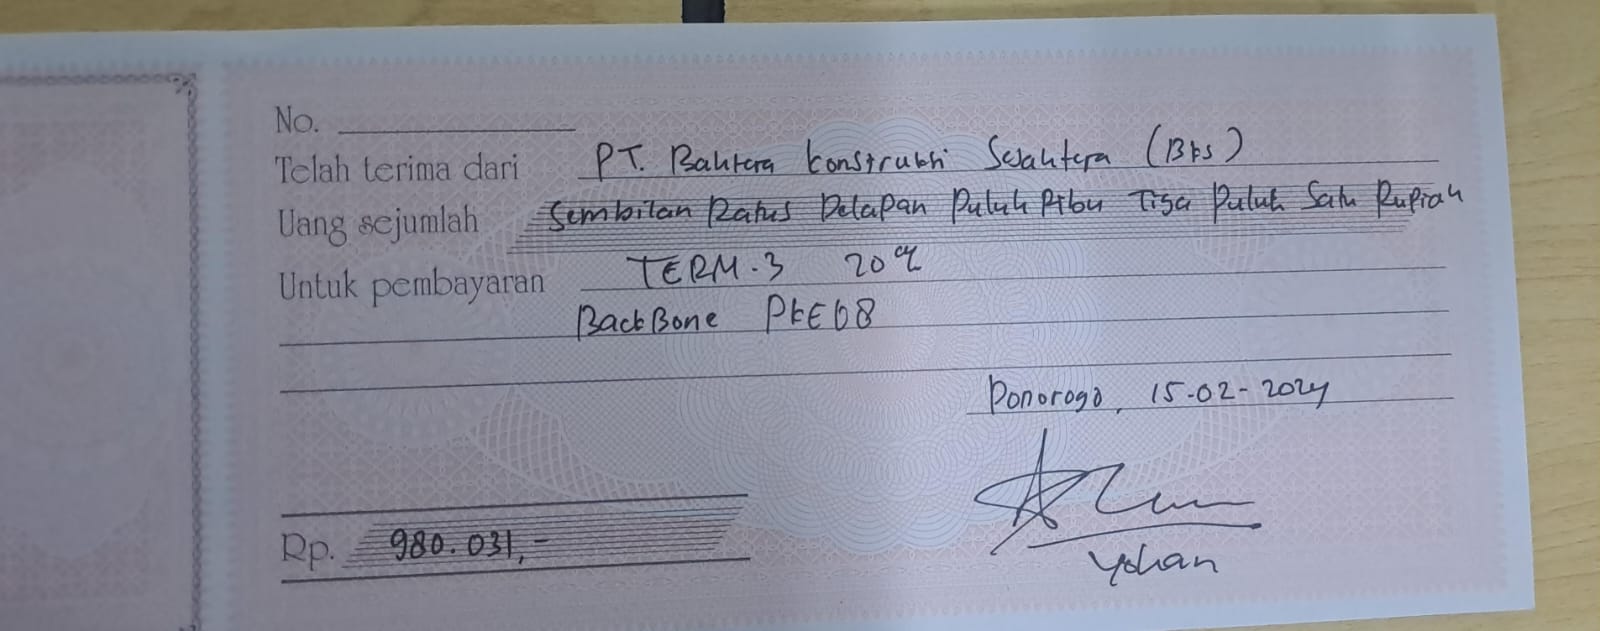 No.
Telah terima dari PT. Bahtera Konstruksi Sejahtera (BKS)
Uang sejumlah Sembilan Ratus Delapan Puluh Ribu Tiga Puluh Satu Rupiah
Untuk pembayaran TERM.3 20%
BackBone PKE68
Ponorogo, 15-02-2024
Rp. 980.031,-
Yohan